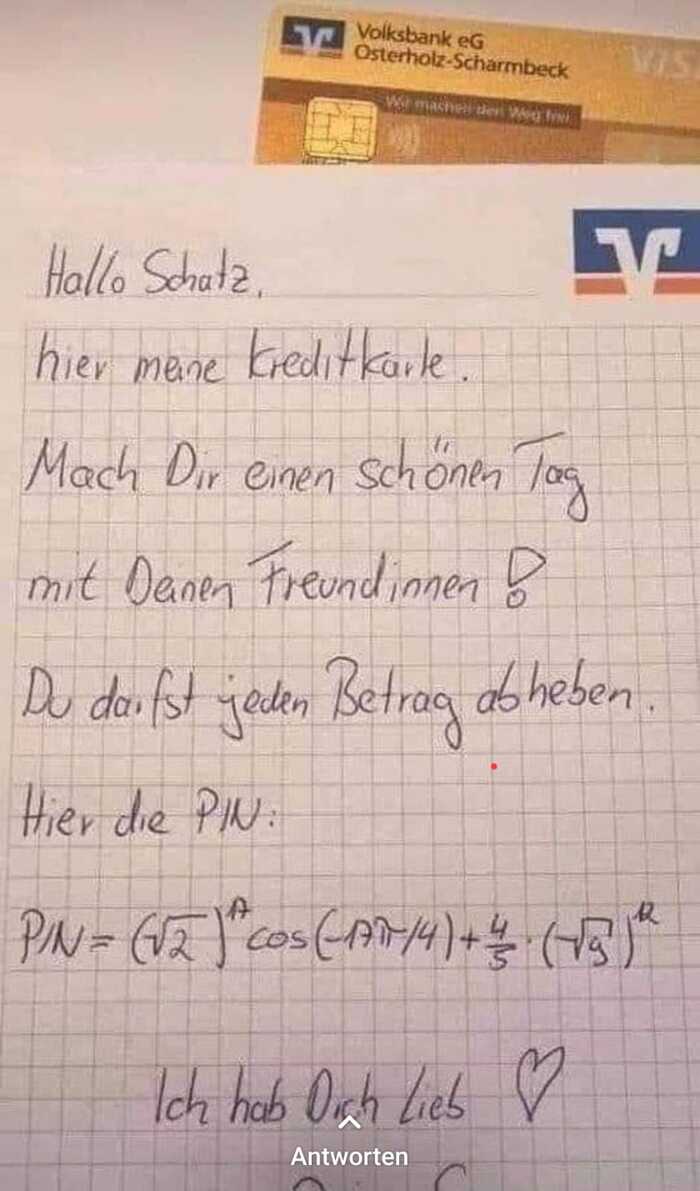 Volksbank eG
Osterholz-Scharmbeck
VISA
Wir machen den Weg frei
Hallo Schatz,
hier meine Kreditkarte.
Mach Dir einen schönen Tag
mit Deinen Freundinnen!
Du darfst jeden Betrag abheben.
Hier die PIN:
PIN = (√2)^17 cos(-17π/4) + 4/5 ·
Ich hab Dich Lieb ♡
Antworten